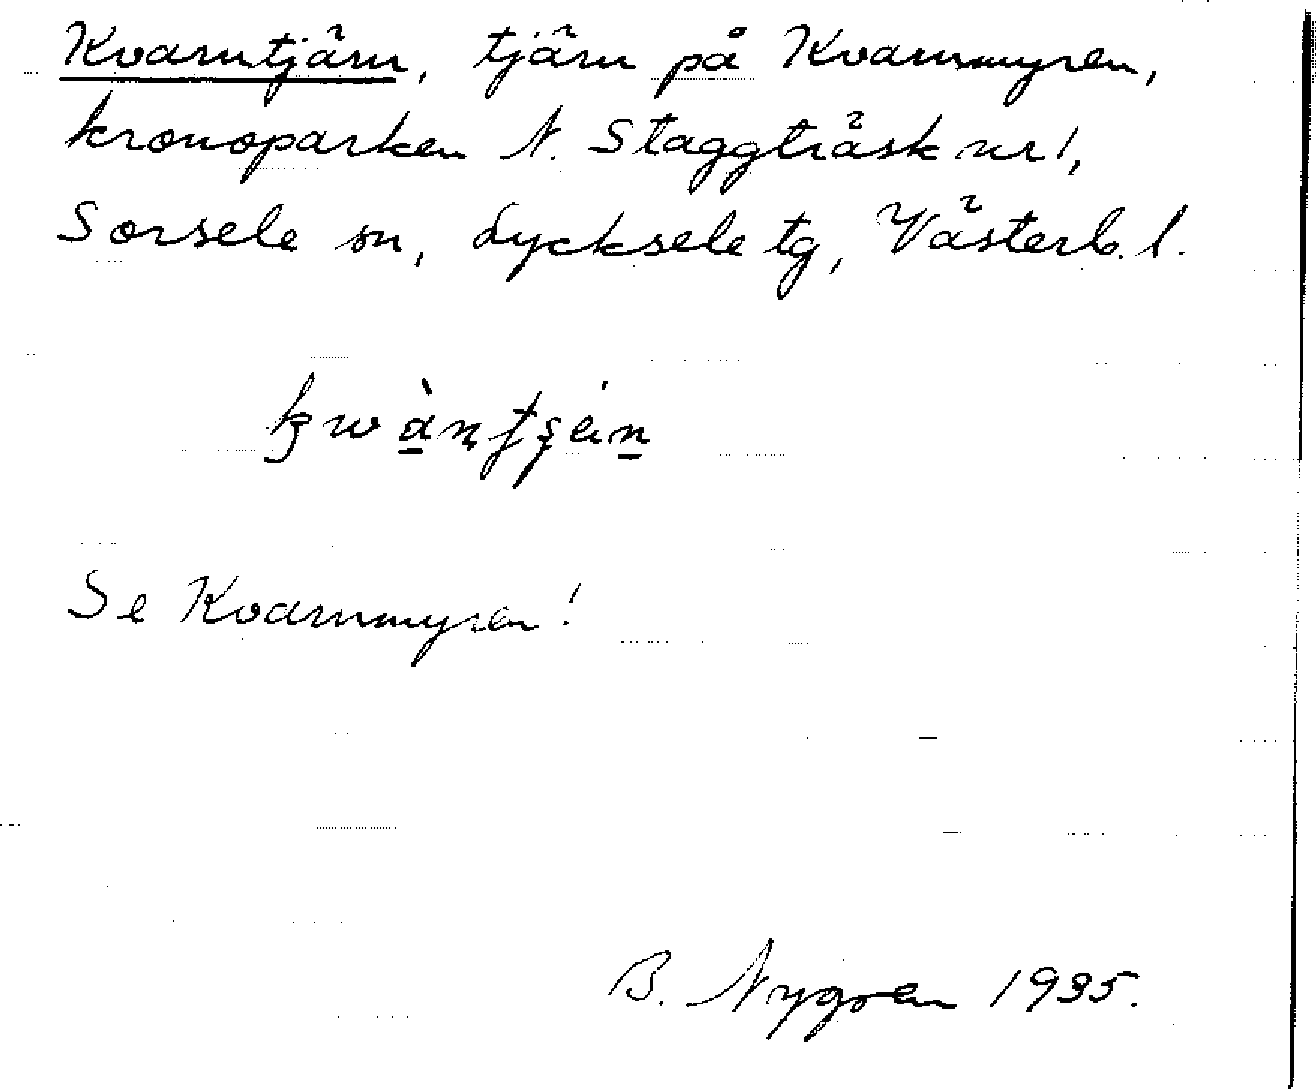 Kvarntjärn, tjärn på Kvarnmyren,
kronoparken N. Staggträsk nr 1,
Sorsele sn, Lycksele tg, Västerb. l.
Se Kvarnmyren!
B. Nygren 1935.